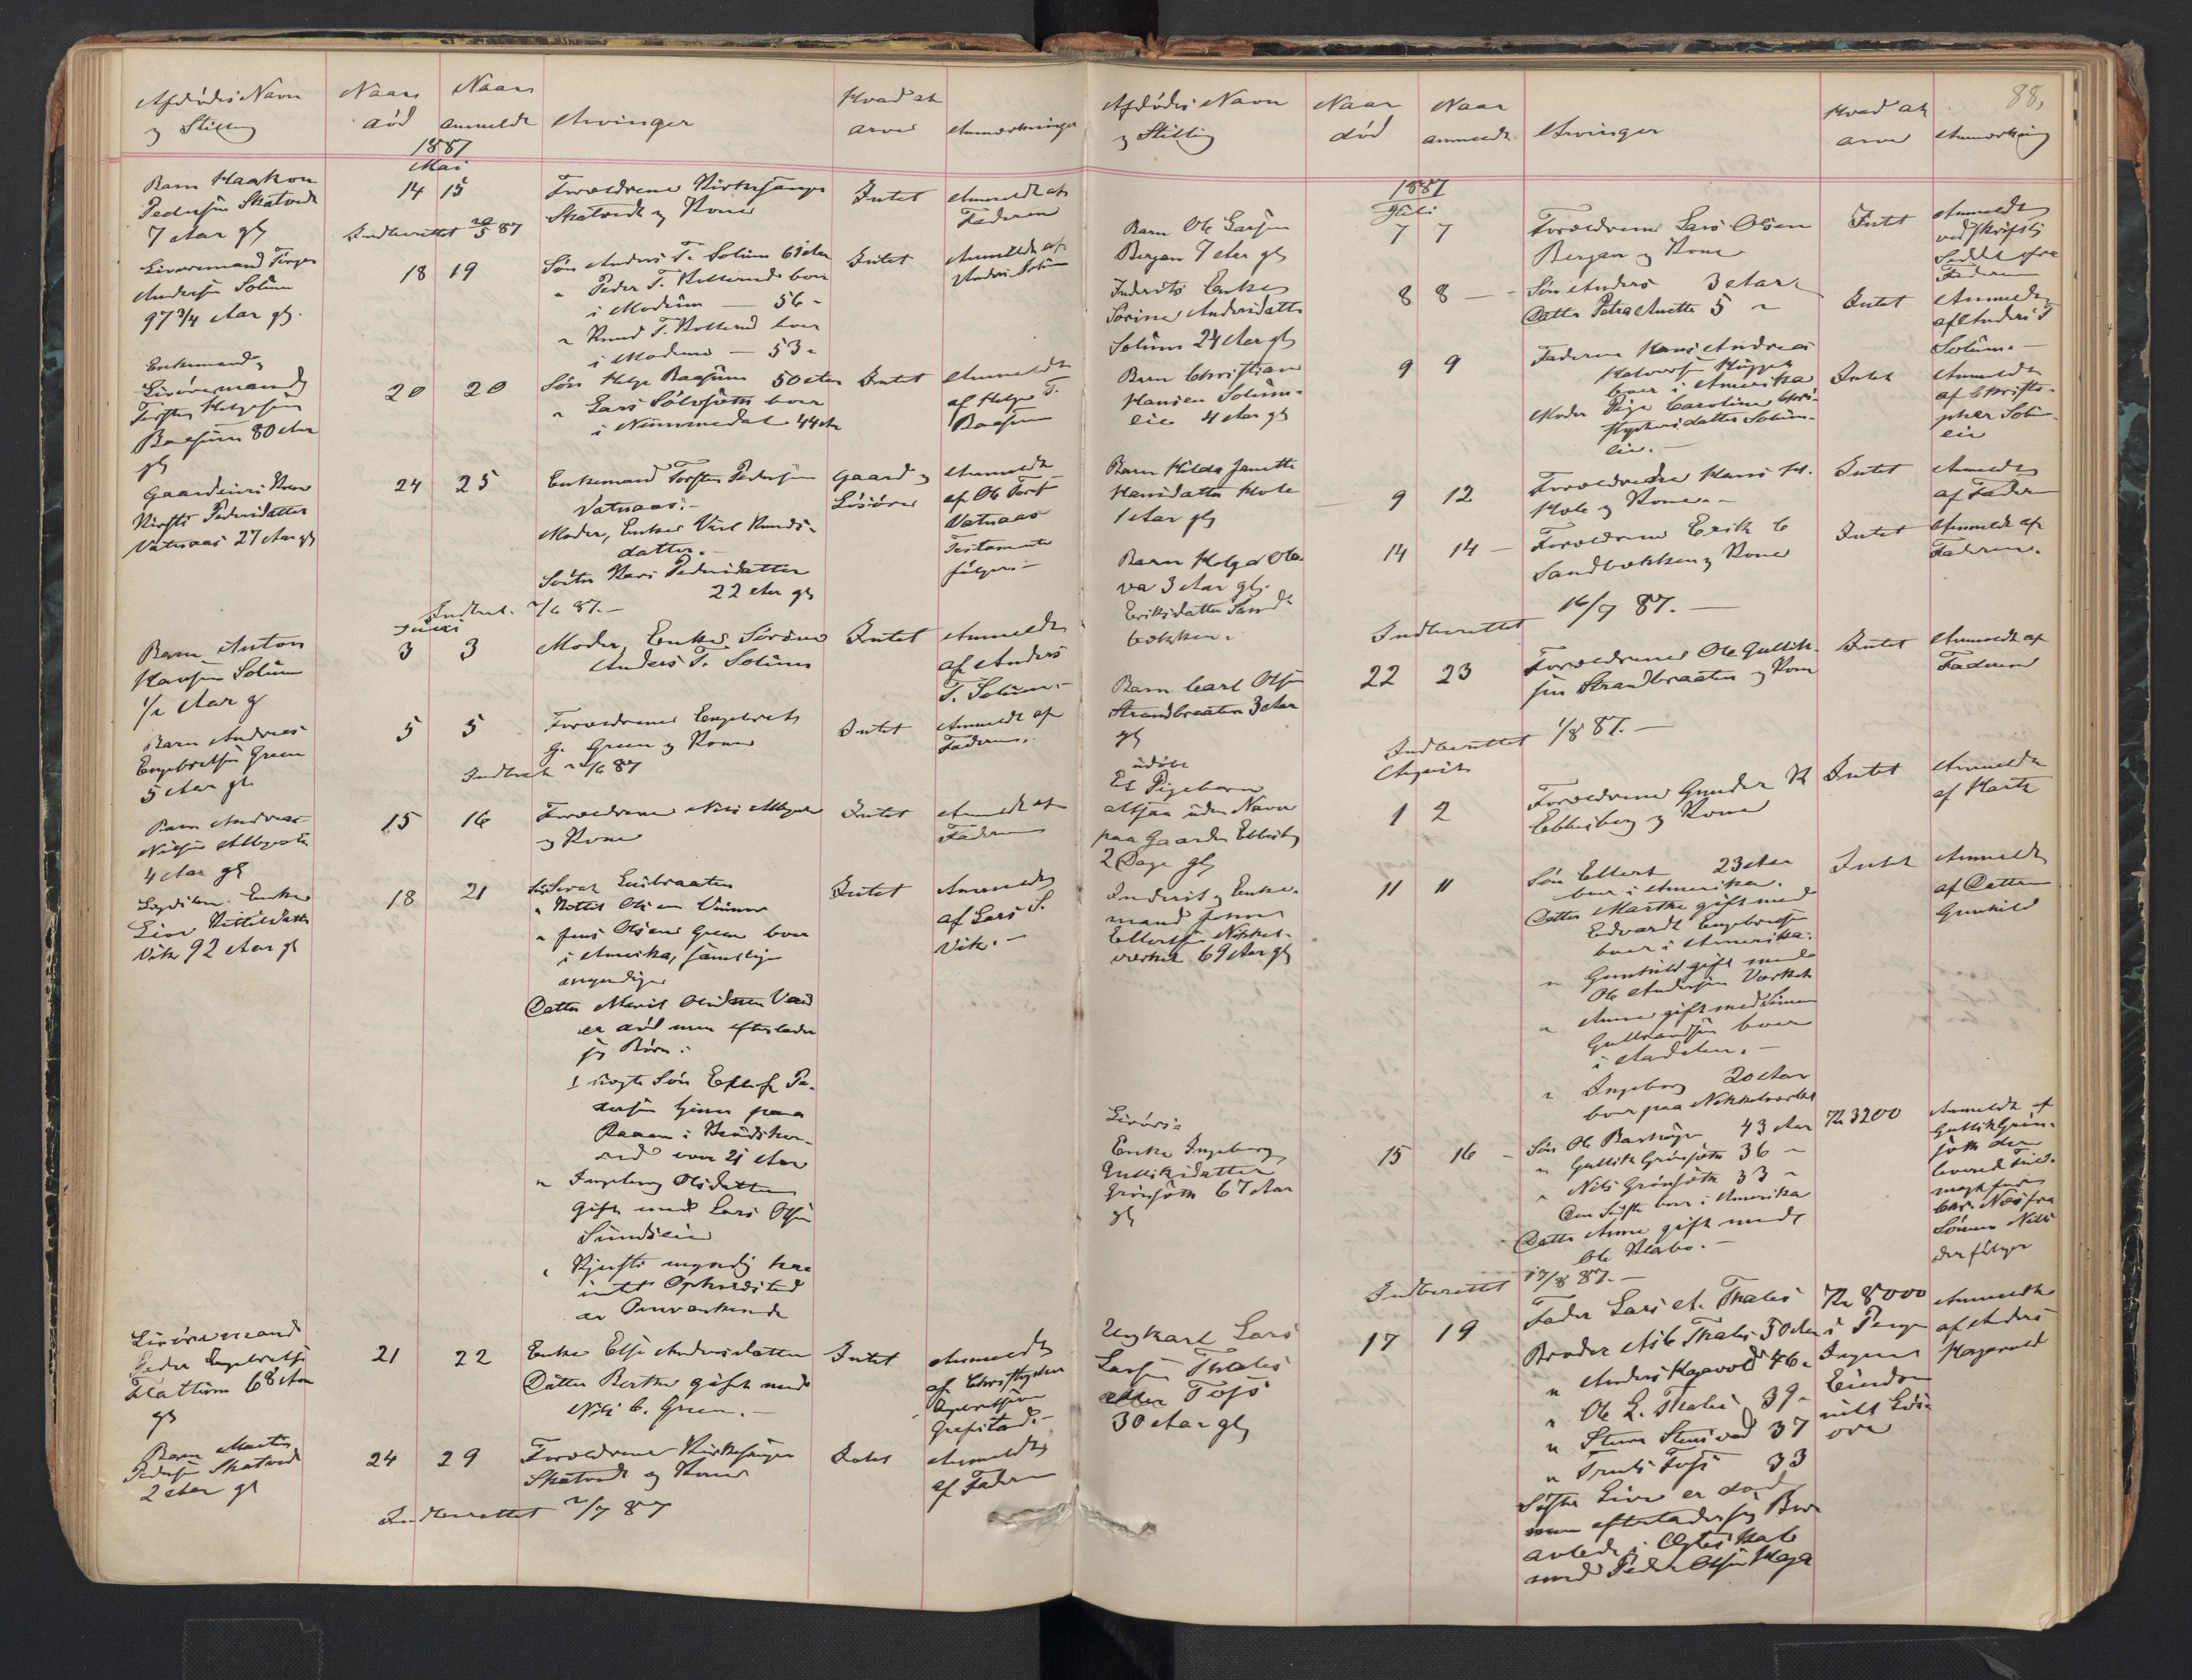 Afdødes Navn
og Stilling
Naar
død
Naar
anmeldt
Arvinger
Hvad at
arve
Anmærkninger
1887
Mai
Barn Haakon
Pedersen Skatvedt
7 Aar gl
14 15
Forældrene Kirkesanger
Skatvedt og Kone
Intet
Anmeldt af
Faderen
Indberettet 20/5 87
Livøremand
Andersen Solum
97 3/4 Aar gl.
18 19
Søn Anders T. Solum 61 Aar
" Peder T. boer
i Modum — 56 "
" Knud T. boer
i Modum — 53 "
Intet
Anmeldt af
Anders Solum
Enkemand og
Livøremand
Torsten Helgesen
Baasum 80 Aar
gl
20 20
Søn Helge Baasum 50 Aar
" Lars boer
i Nummedal 44 Aar
Intet
Anmeldt
af Helge T.
Baasum
Gaardeiers Kone
Kirsti Pedersdatter
Vatnaas 27 Aar gl
24 25
Enkemand Torsten Pedersen
Vatnaas.-
Moder, Enke Knuds-
datter.-
Søster Kari Pedersdatter
22 Aar gl
Gaard og
Løsøre
Anmeldt
af Ole Torst
Vatnaas
Testamente
følger.-
Indbret. 2/6 87.-
Juni
Barn Anton
Hansen Solum
1/2 Aar gl
3 3
Moder, Enke Sørine
Anders T. Solum
Intet
Anmeldt
af Anders
T. Solum.-
Barn Andreas
Engebretsen Green
5 Aar gl.
5 5
Forældrene Engebret
G. Green og Kone
Intet
Anmeldt af
Faderen.
Indbret 6 87
Barn Andreas
Nilsen
4 Aar gl
15 16
Forældrene Nils
og Kone
Intet
Anmeldt af
Faderen
Enke
Liv Kittilsdatter
Vik 92 Aar gl
18 21
" Kittil Olsen
" Jens Olsen Green boer
i Amerika, samtlige
myndige
Datter Marit
er død men efterlader
sig Børn:
1 ægte Søn
paa
i
over 21 Aar
" Ingeborg Olsdatter
Gift med Lars Olsen
" Kjersti myndig har
intet Opholdsted
Intet
Anmeldt
af Lars S.
Vik.-
Livøremand
Peder Engebretsen
Flattum 68 Aar
gl
21 22
Enke Elsi Andersdatter
Datter Berthe gift med
Nils C. Green.-
Intet
Anmeldt
af Christopher
Barn Martin
Pedersen Skatvedt
2 Aar gl
24 29
Forældrene Kirkesanger
Skatvedt og Kone
Intet
Anmeldt
af Faderen
Indberettet 2/7 87
88,
Afdødes Navn
og Stilling
Naar
død
Naar
anmeldt
Arvinger
Hvad at
arve
Anmærkning
1887
Juli
Barn Ole Larsen
Bergan 7 Aar gl
7 7
Forældrene Lars Olsen
Bergan og Kone
Intet
Anmeldt
ved skriftlig
Seddel fra
Faderen
Indersts Enke
Sørine Andersdatter
Solum 24 Aar gl
8 8 —
Søn Anders 3 Aar
Datter Petra Anette 5 "
Intet
Anmeldt
af Anders T
Solum.-
Barn Christian
Hansen Solum-
eie 4 Aar gl
9 9
Faderen Hans Andreas
Halvorsen
boer i Amerika
Moder Pige Caroline Chri-
stophersdatter Solum-
eie.-
Intet
Anmeldt
af Christo-
pher Solum
eie
Barn Hilda Janette
Hansdatter Hole
1 Aar gl
9 12
Forældrene Hans H.
Hole og Kone.-
Intet
Anmeldt
af Faderen
Barn Helga Ole-
va 3 Aar gl.
Eriksdatter Sand-
bækken.
14 14 —
Forældrene Erik C
Sandbækken og Kone
Intet
Anmeldt af
Faderen.
Indberettet 16/7 87.—
Barn Carl Olsen
Strandbraaten 3 Aar
gl
22 23
Forældrene Ole Gullik-
sen Strandbraaten og Kone
Intet
Anmeldt af
Faderen
Indberettet 1/8 87.—
August
udøbt
Et Pigebarn
altsaa uden Navn
paa Gaarden
2 Dage gl
1 2
Forældrene Gunder K
og Kone
Intet
Anmeldt
af
Inderst og Enke-
mand
Ellertsen Nikkel-
værket 69 Aar gl
11 11
Søn Ellert 23 Aar
boer i Amerika.
Datter Marthe gift med
Edvardt Engebretsen
boer i Amerika.
" Gunhild gift med
Ole Andersen Værket
" Anne gift med Simen
Gulbrandsen boer
i Aadalen.-
" Ingeborg 20 Aar
boer paa Nikkelværket
Intet
Anmeldt
af Datteren
Gunhild
Livøre-
Enke Ingeborg
Gulliksdatter
Grønsjøth 67 Aar
gl
15 16 —
Søn Ole 43 Aar
" Gullik Grønsjøth 36 "
" Nils Grønsjøth 33 "
Den Sidste boer i Amerika
Datter Anne gift med
Ole
Kr 3200
Anmeldt af
Gullik Grøn-
sjøth der
leverede Fuld-
magt for
fra
Sønnen Nils
der følger
Indberettet 17/8 87.—
Ungkarl Lars
Larsen Thales
eller Foss
30 Aar gl
17 19
Fader Lars A. Thales
Broder Asle Thales 50 Aar
" Anders Hagavold 46 "
" Ole L. Thales 39 "
" Sture 37
" Truls Foss 33
Søster Live er død
men efterlader sig Børn
avlede i Ægteskab
med Peder Olsen Haga
Kr 8000
i Penge
Ingen
Eiendom
eller Løs-
øre
Anmeldt
af Anders
Hagavold